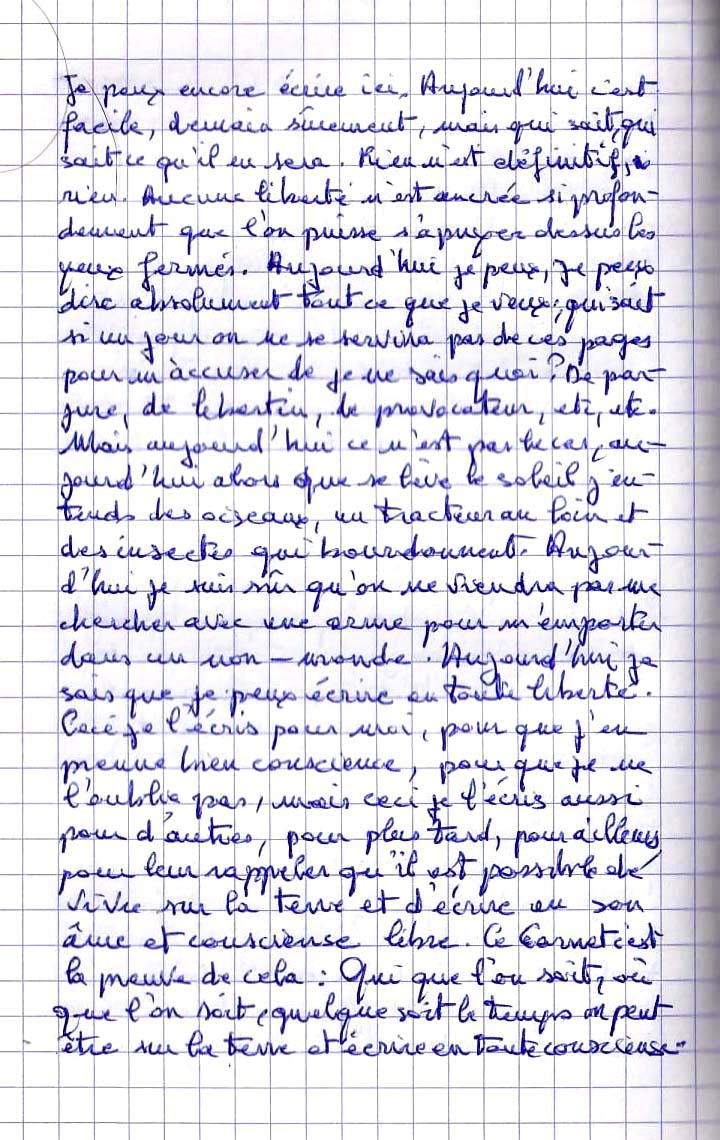 Je peux encore écrire ici. Aujourd'hui c'est
facile, demain sûrement, mais qui sait, qui
sait ce qu'il en sera. Rien n'est définitif,
rien. Aucune liberté n'est ancrée si profon-
dement que l'on puisse s'apuyer dessus les
yeux fermés. Aujourd'hui je peux, je peux
dire absolument tout ce que je veux, qui sait
si un jour on ne se servira pas de ces pages
pour m'accuser de je ne sais quoi? De par-
jure, de libertin, de provocateur, etc, etc.
Mais aujourd'hui ce n'est pas le cas, au-
jourd'hui alors que se lève le soleil j'en-
tends des oiseaux, un tracteur au loin et
des insectes qui bourdonnent. Aujour-
d'hui je suis sûr qu'on ne viendra pas me
chercher avec une arme pour m'emporter
dans un non-monde. Aujourd'hui je
sais que je peux écrire en toute liberté.
Ceci je l'écris pour moi, pour que j'en
prenne bien conscience, pour que je ne
l'oublie pas, mais ceci je l'écris aussi
pour d'autres, pour plus tard, pour ailleurs
pour leur rappeler qu'il est possible de
vivre sur la terre et d'écrire en son
âme et consciense libre. Ce Carnet c'est
la preuve de cela : Qui que l'on soit, où
que l'on soit, quelque soit le temps on peut
être sur la terre et écrire en toute consciense.